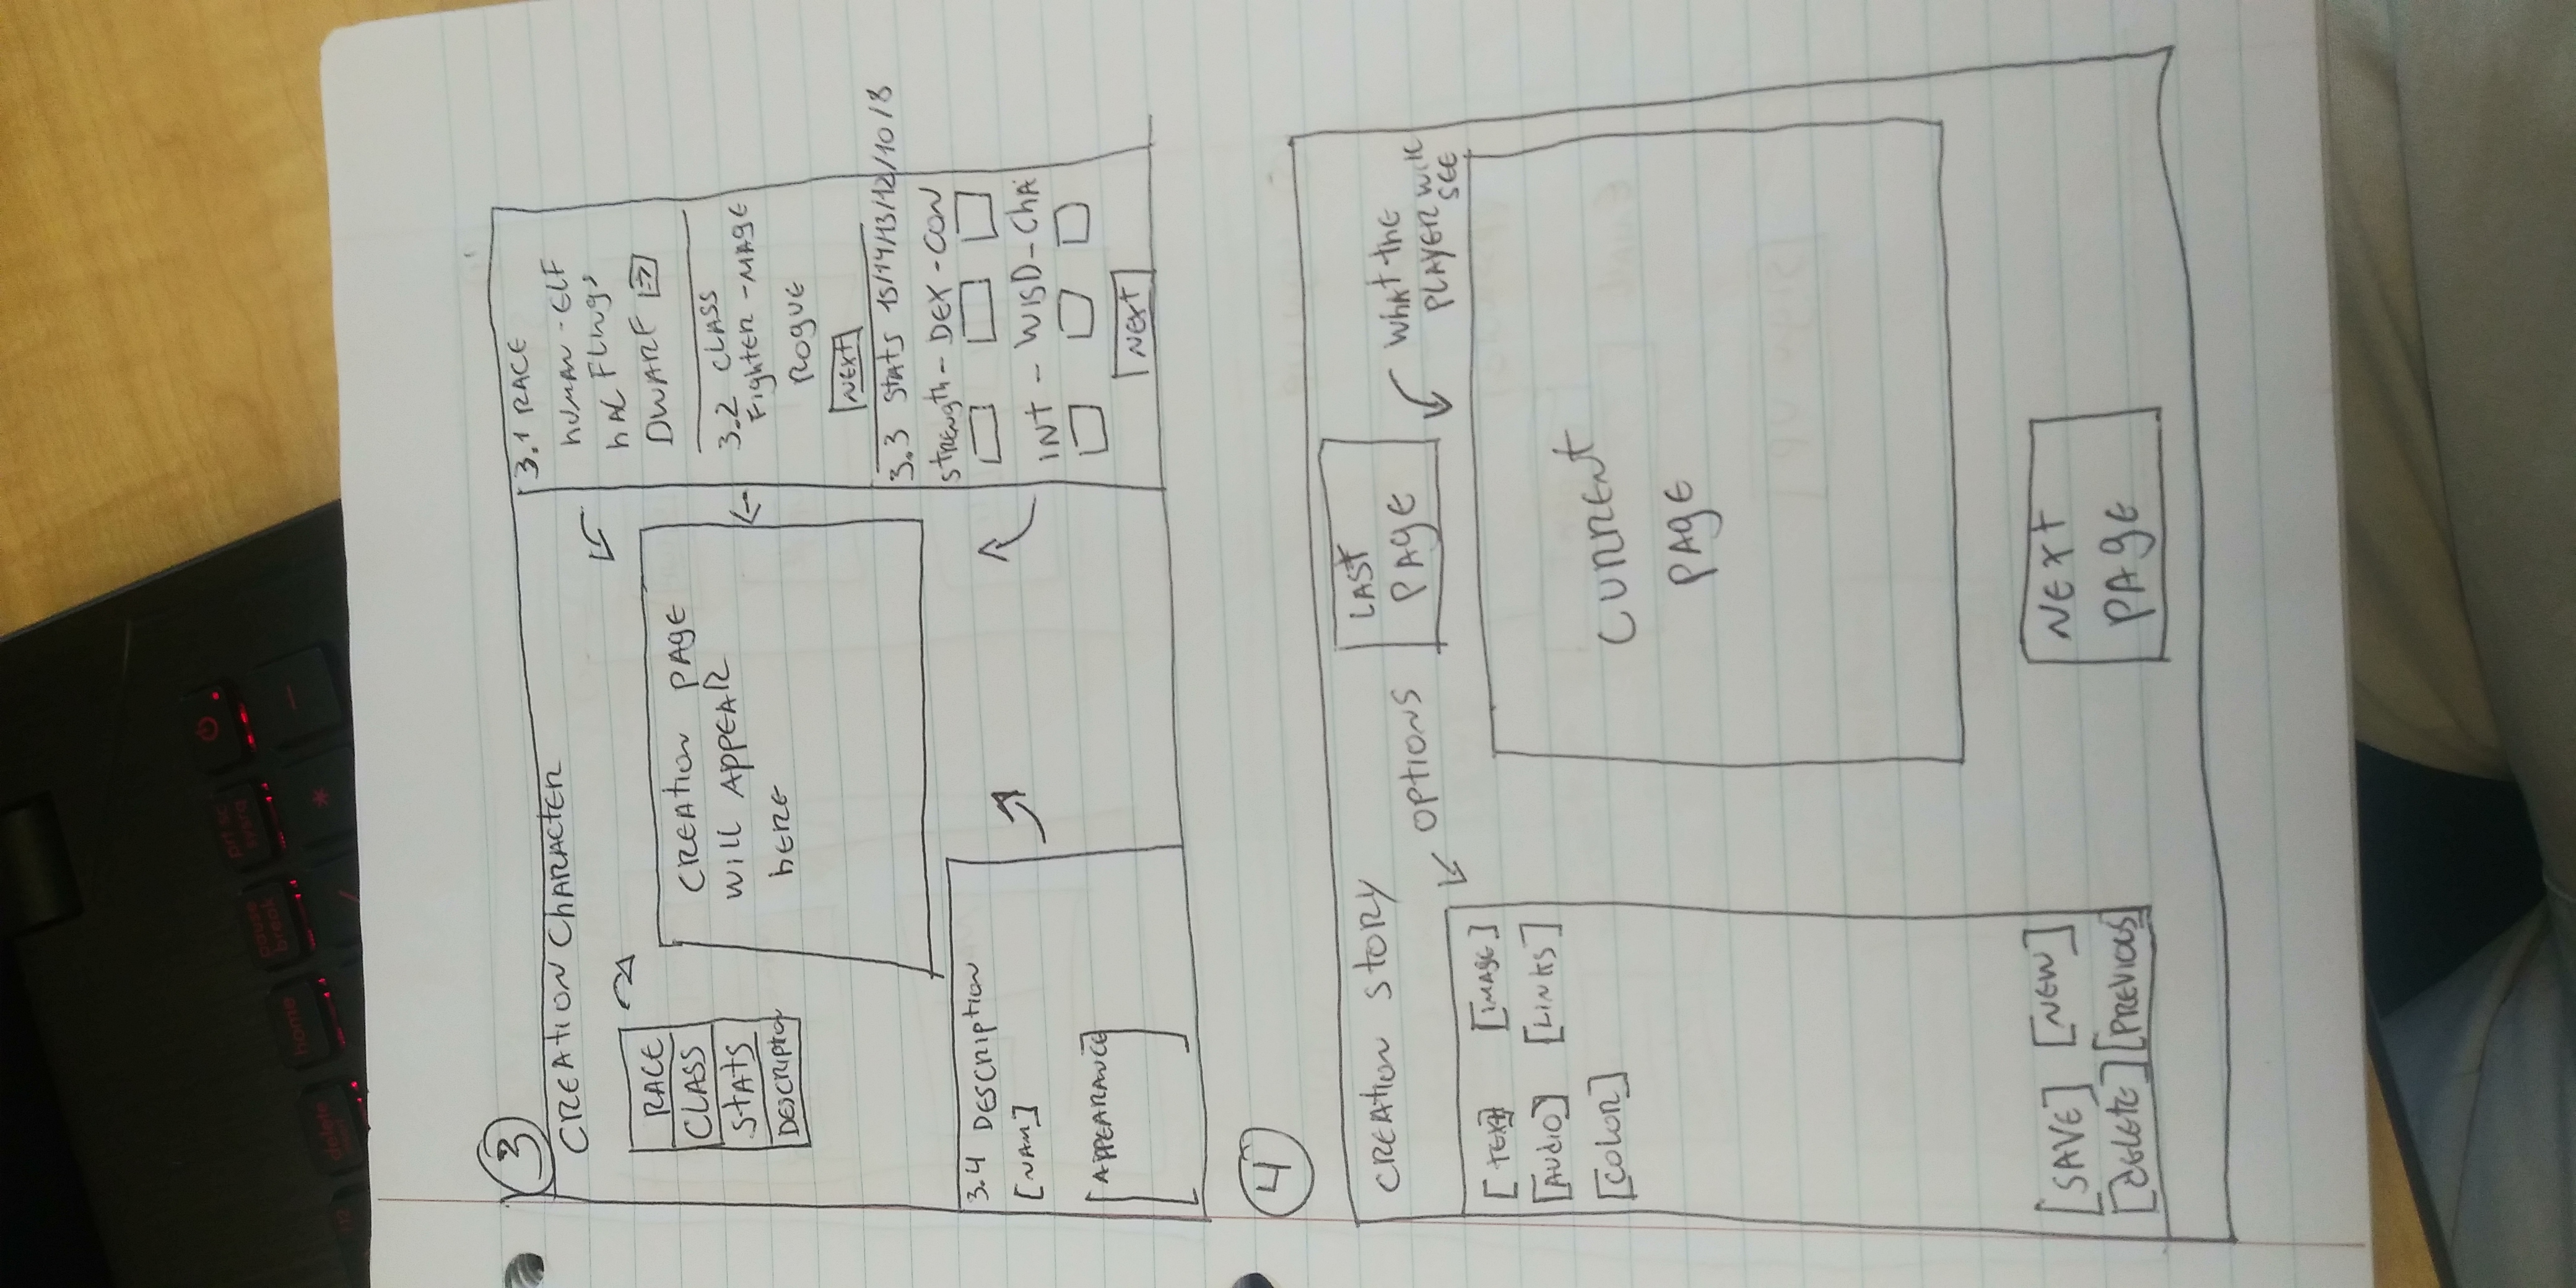 prt sc
sysrq
pause
break
home
delete
*
/
3
CREATION CHARACTER
RACE
CLASS
STATS
CREATION PAGE
WILL APPEAR
HERE
3.1 RACE
HUMAN - ELF
HALFLINGS
DWARF
3.2 CLASS
FIGHTER - MAGE
ROGUE
NEXT
3.3 STATS 15/14/13/12/10/8
STRENGTH - DEX - CON
INT - WISD - CHA
NEXT
3.4 DESCRIPTION
[NAM]
[APPEARANCE]
4
CREATION STORY
OPTIONS
LAST
PAGE
WHAT THE
PLAYER WILL
SEE
[TEXT] [IMAGE]
[AUDIO] [LINKS]
[COLOR]
CURRENT
PAGE
[SAVE] [NEW]
[DELETE] [PREVIOUS]
NEXT
PAGE